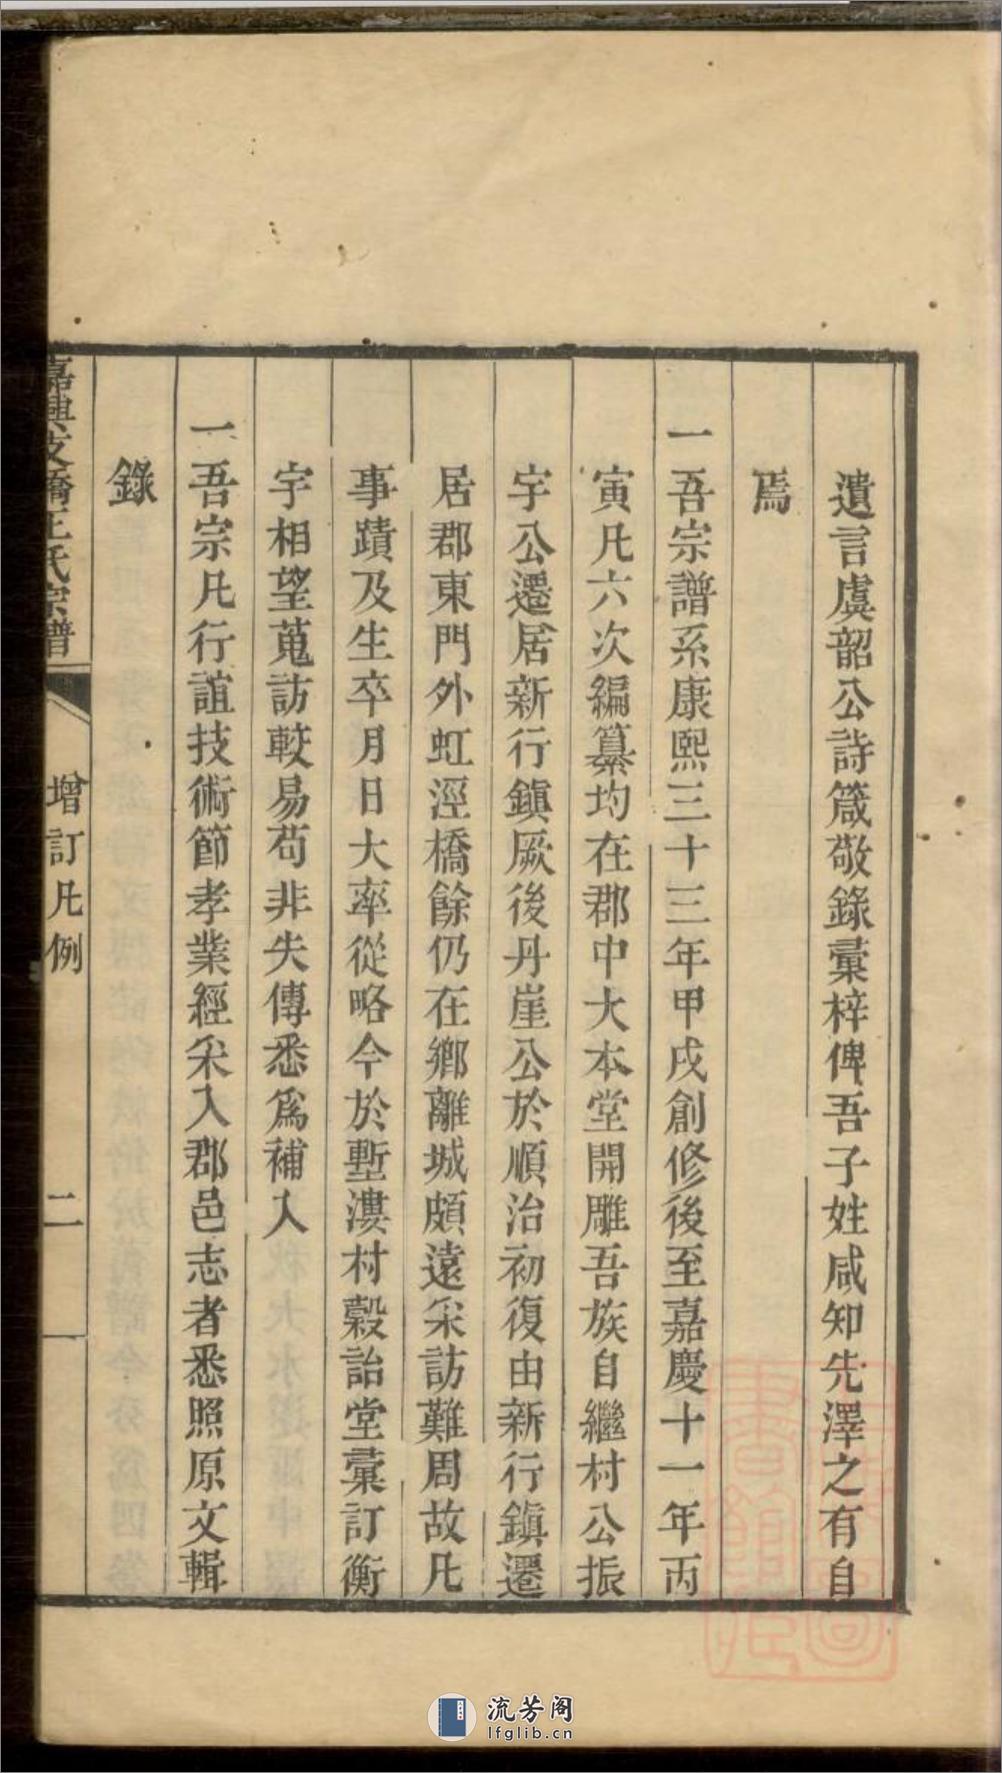 遺言虞韶公詩箴敬錄彙梓俾吾子姓咸知先澤之有自
焉
一吾宗譜系康熙三十三年甲戌創修後至嘉慶十一年丙
寅凡六次編纂均在郡中大本堂開雕吾族自繼村公振
宇公遷居新行鎮厥後丹崖公於順治初復由新行鎮遷
居郡東門外虹涇橋餘仍在鄉離城頗遠采訪難周故凡
事蹟及生卒月日大率從略今於塹漊村穀詒堂彙訂衡
宇相望蒐訪較易苟非失傳悉爲補入
一吾宗凡行誼技術節孝業經采入郡邑志者悉照原文輯
錄
嘉興支橋王氏宗譜
增訂凡例
二
流芳阁
lfglib.cn